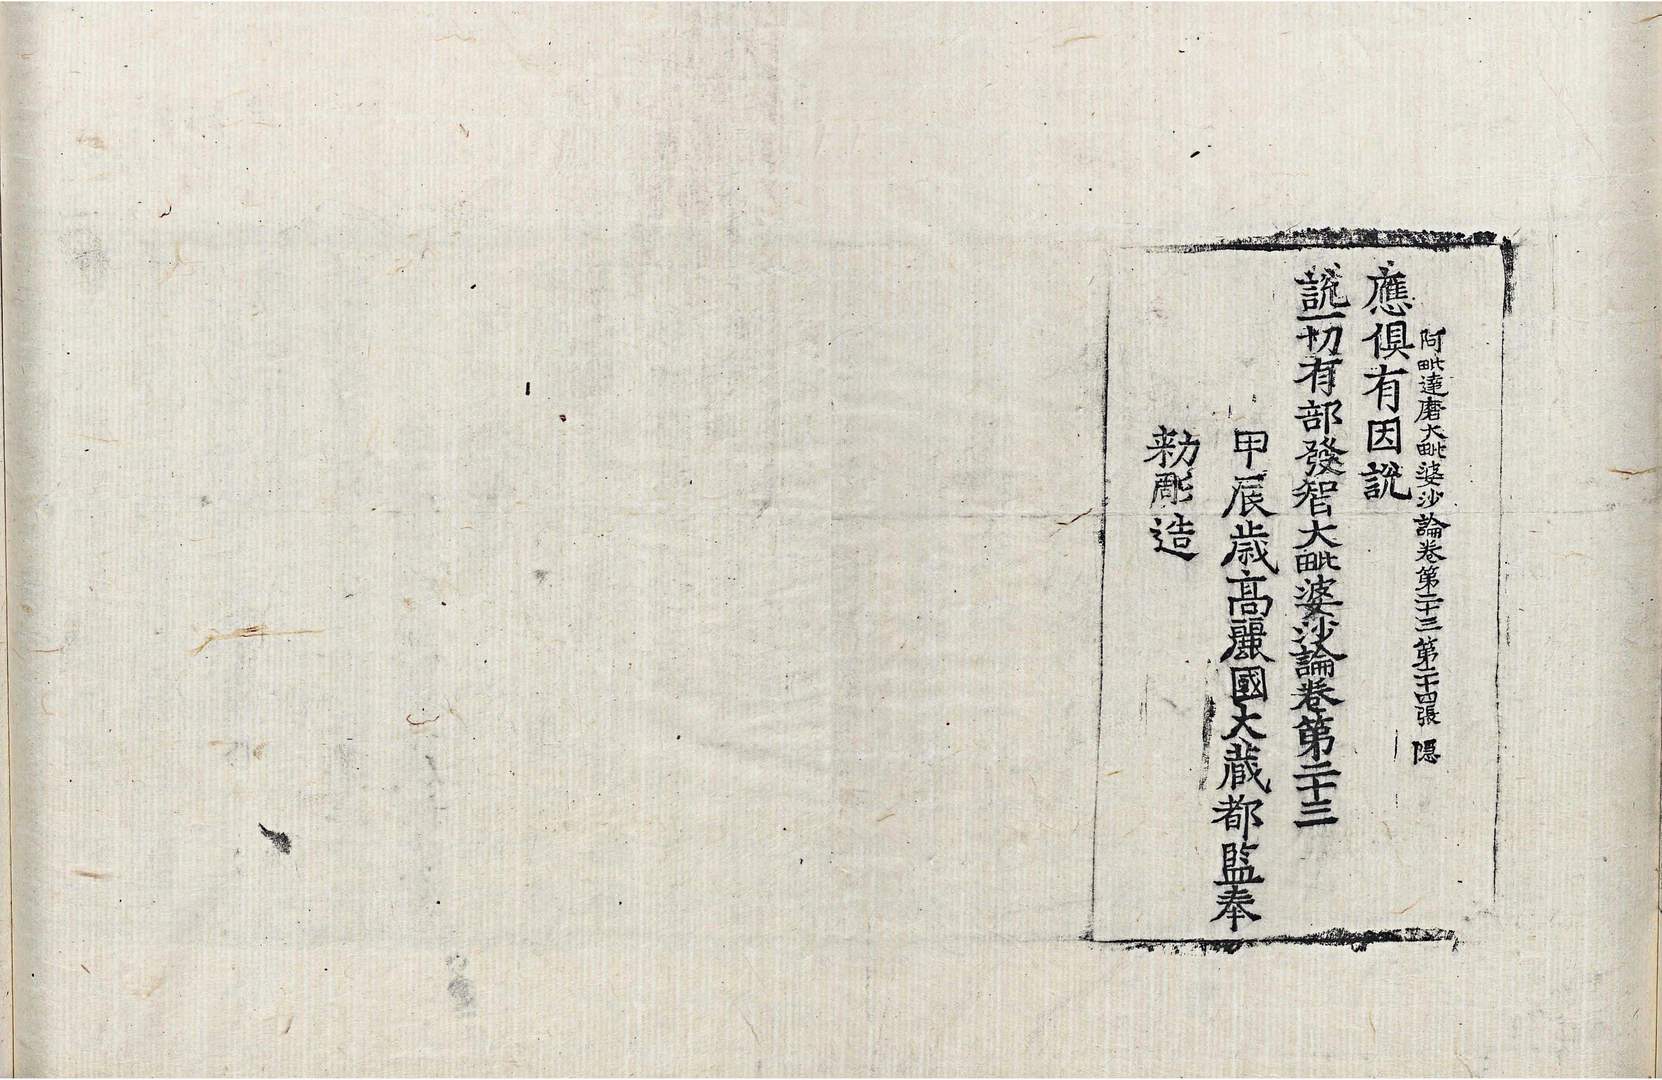 阿毗達磨大毗婆沙論卷第二十三第二十四張 隱
應俱有因說
說一切有部發智大毗婆沙論卷第二十三
甲辰歲高麗國大藏都監奉
勑彫造